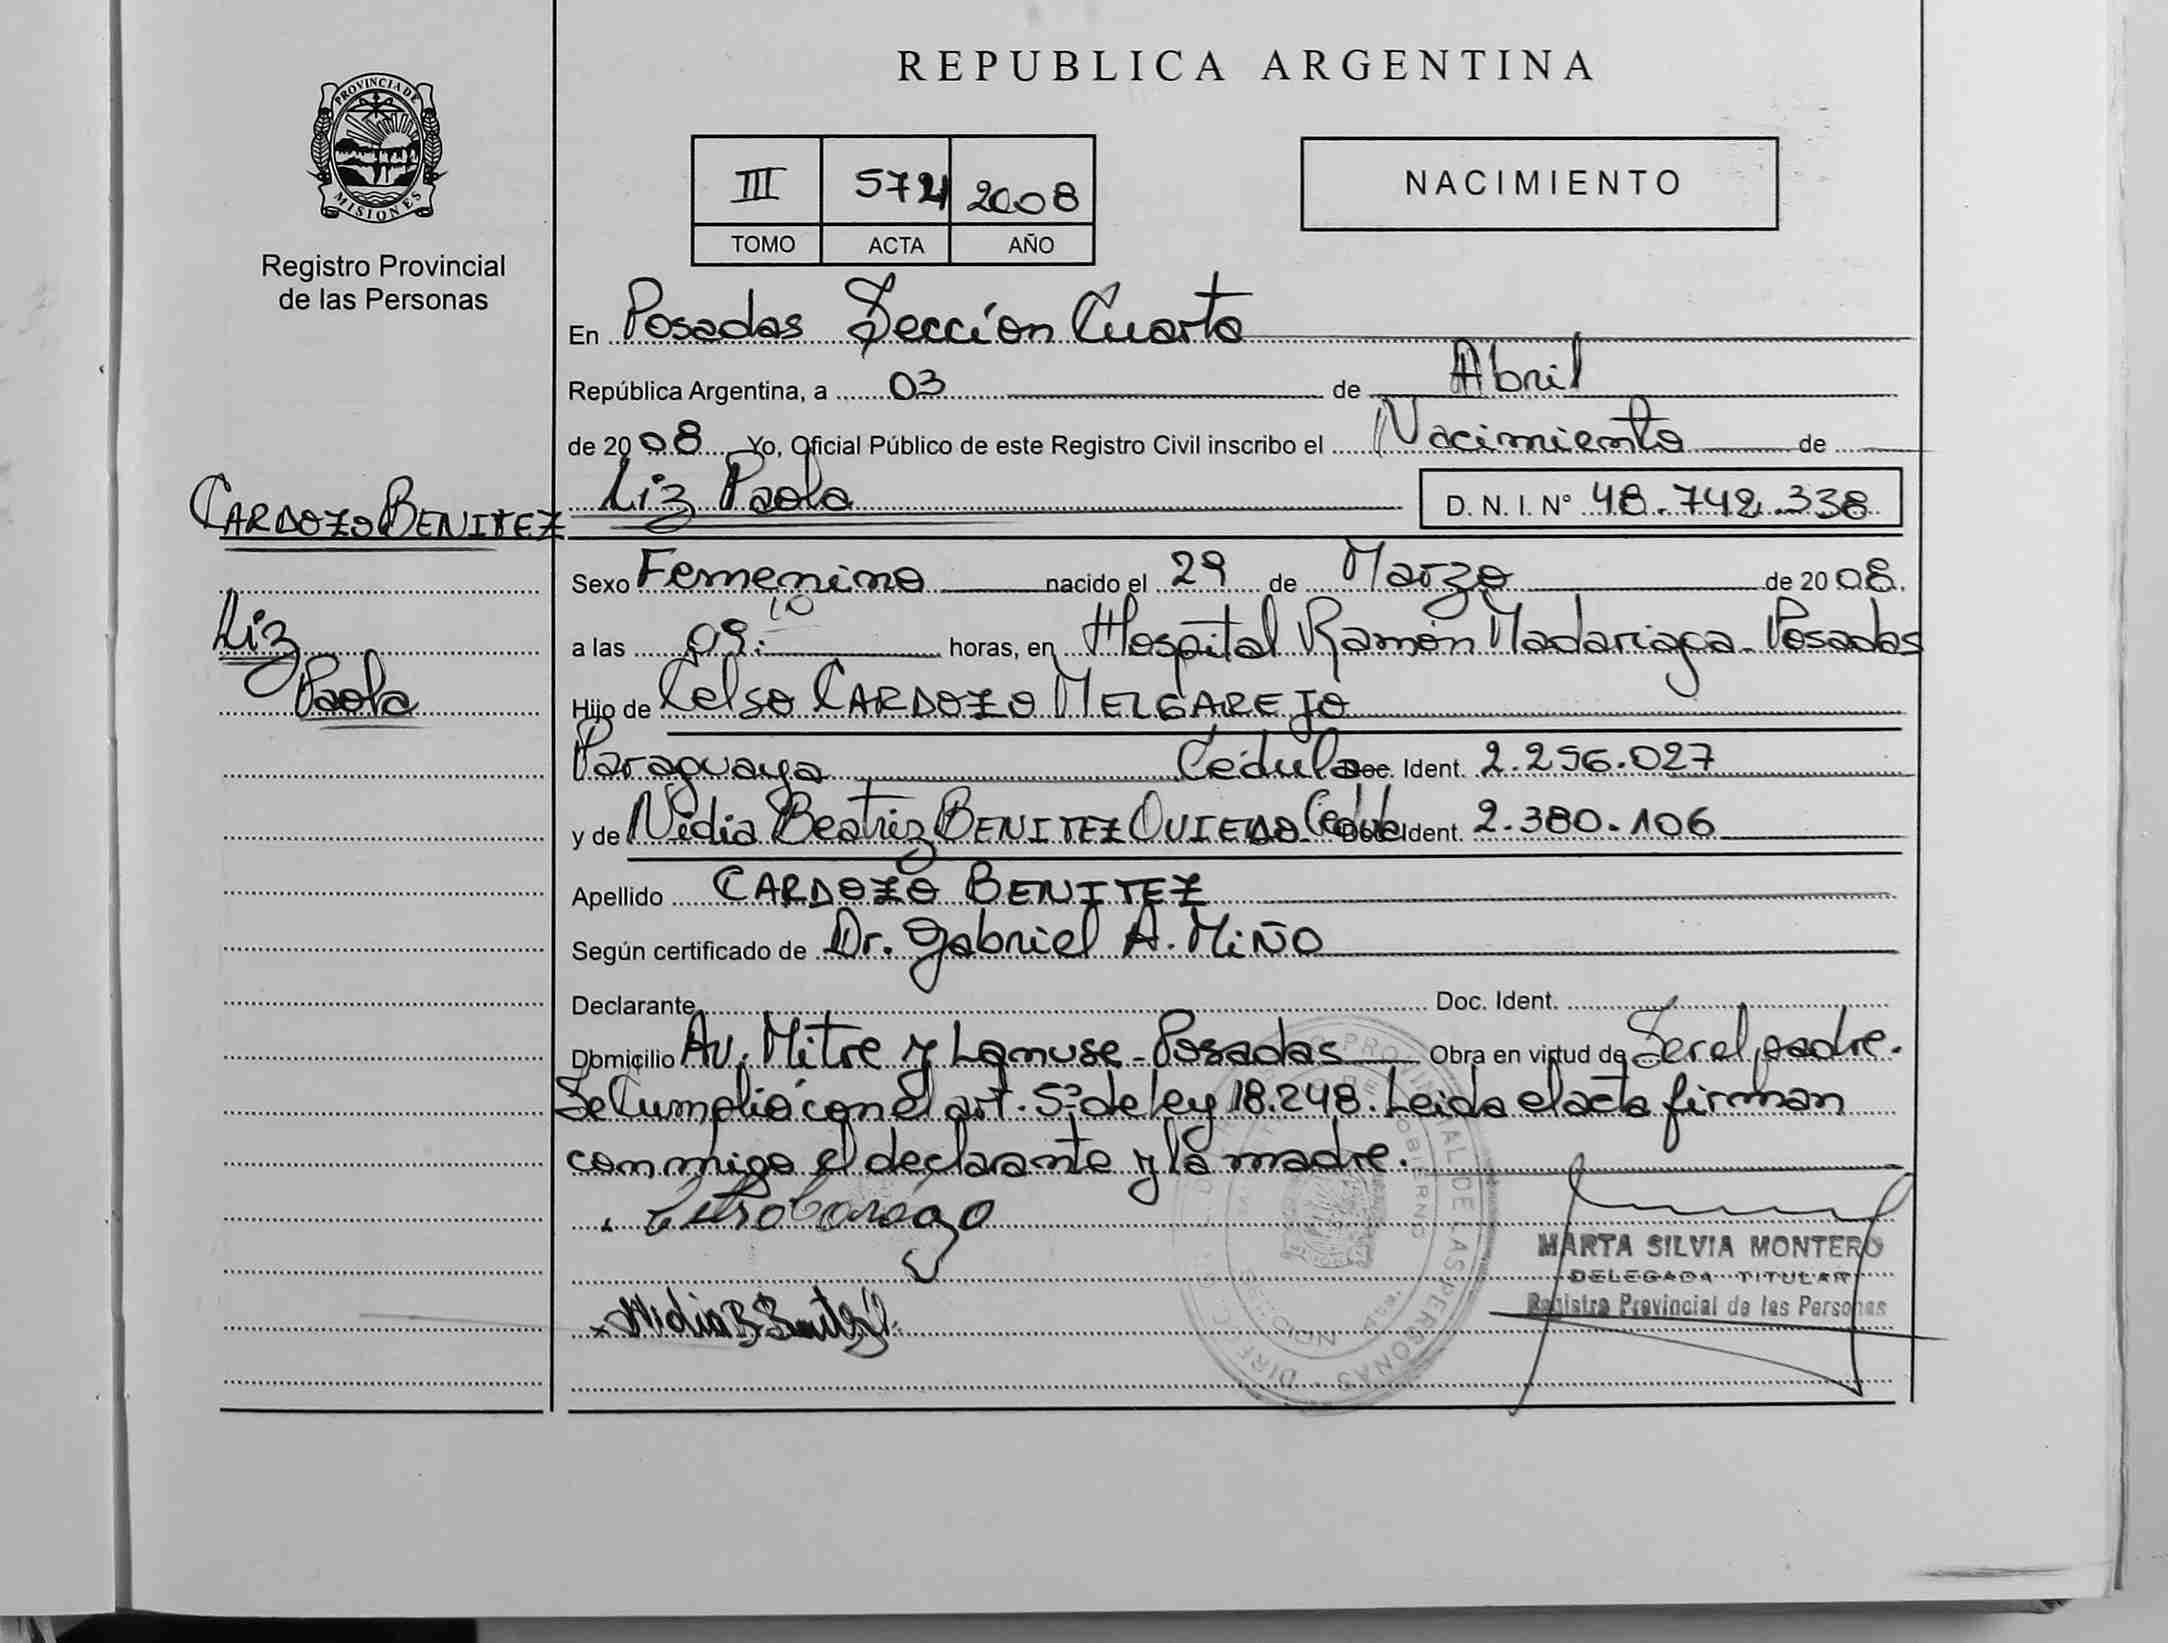 REPUBLICA ARGENTINA
PROVINCIA DE
MISIONES
Registro Provincial
de las Personas
III 2008
TOMO ACTA AÑO
NACIMIENTO
En Posadas Sección Cuarta
República Argentina, a 03 de Abril
de 2008 Yo, Oficial Público de este Registro Civil inscribo el Nacimiento de
CARDOZO BENITEZ
Liz Paola D. N. I. N° 48.742.338
Sexo Femenino nacido el 29 de Marzo de 2008.
Liz
a las 09:10 horas, en Hospital Ramón Madariaga - Posadas
Paola
Hijo de Celso CARDOZO MELGAREJO
Paraguaya Cédula Doc. Ident. 2.256.027
y de Nidia Beatriz BENITEZ OVIEDO Cédula Doc. Ident. 2.380.106
Apellido CARDOZO BENITEZ
Según certificado de Dr. Gabriel A. Miño
Declarante Doc. Ident.
Domicilio Av. Mitre y Lanuse - Posadas Obra en virtud de Ser el padre.
Se Cumplió con el art. 5º de ley 18.248. Leida el acta firman
conmigo el declarante y la madre.
MARTA SILVIA MONTERO
DELEGADA TITULAR
Registro Provincial de las Personas